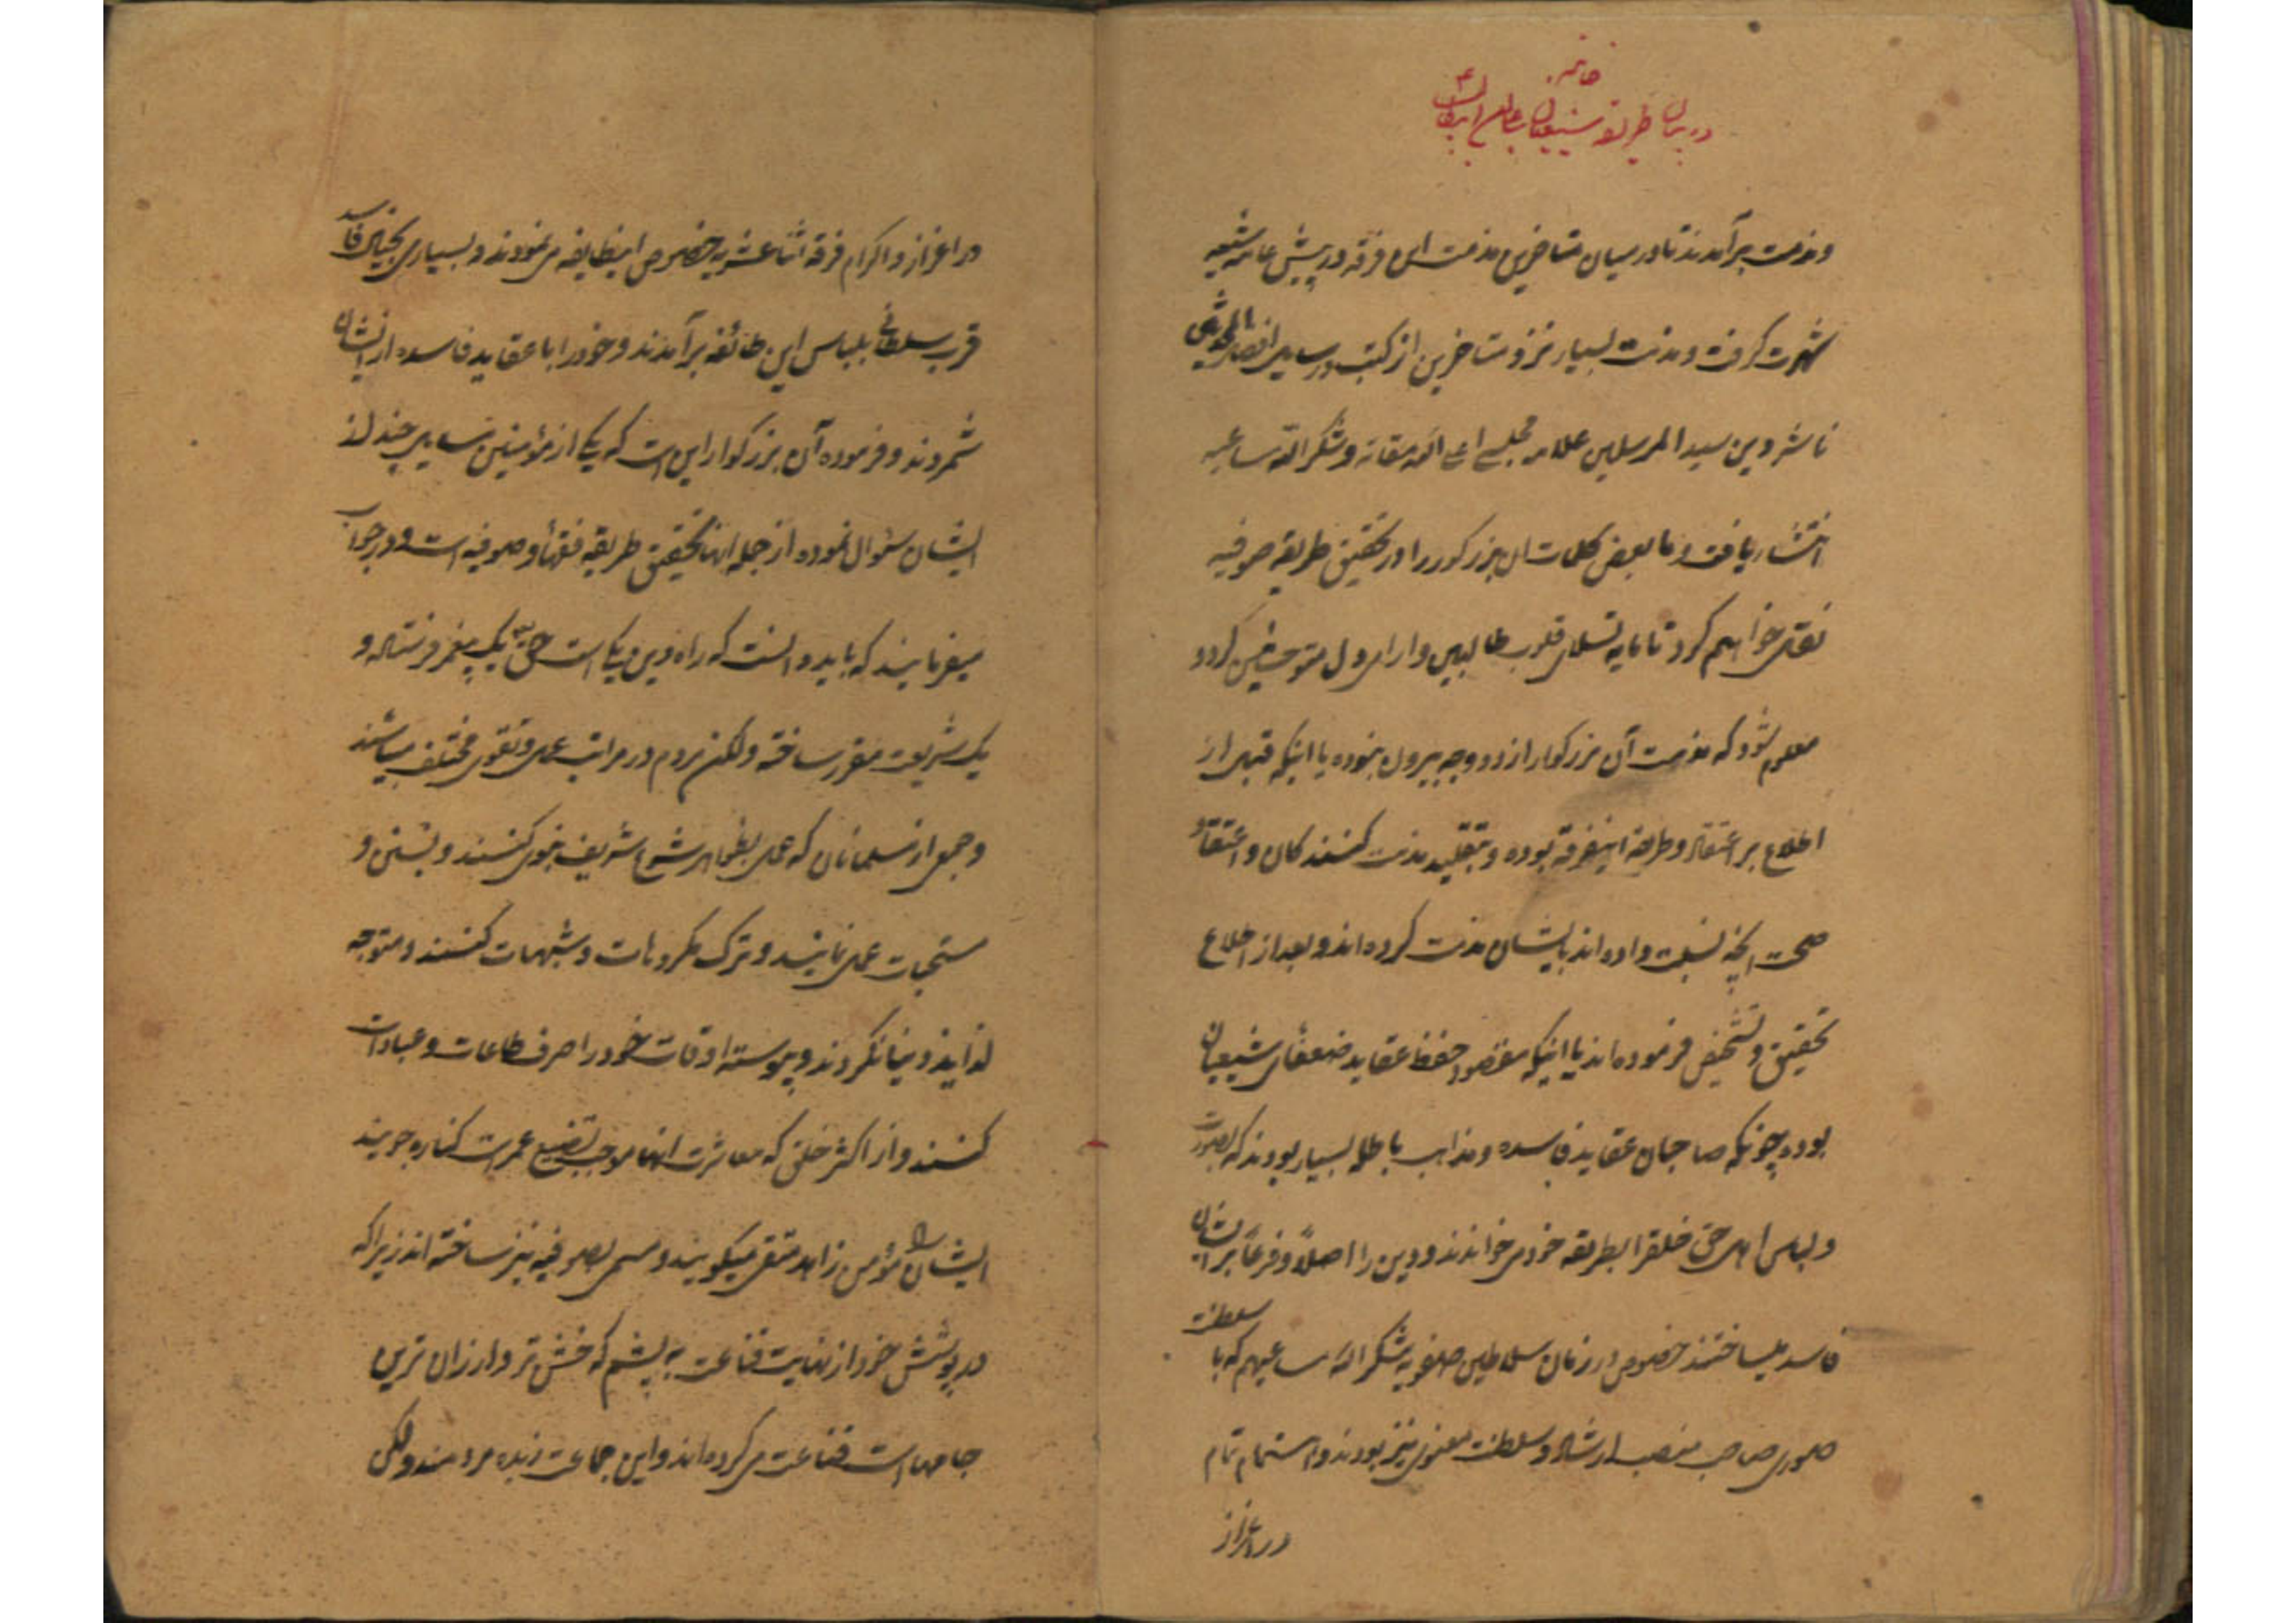 خاتمه
در بیان طریقه شیعیان
ومذمت برآمدند تا در میان متاخرین مذمت این فرقه در پیش عامه شیعه
شهرت گرفت و مذمت بسیار نزد متاخرین از کتب و رسایل
ناشر دین سید المرسلین علامه مجلسی اعلی الله مقامه و شکر الله ساعیه
انتشار یافت و ما بعض کلمات ان بزرکوار را در تحقیق طریقه صوفیه
نقل خواهم کرد تا مایه تسلای قلوب طالبین و آرام دل متوحشین کردد
معلوم شود که مذمت آن بزرکوار از دو وجه بیرون نبوده یا اینکه قبل از
اطلاع بر اعتقاد و طریقه اینفرقه بوده و بتقلید مذمت کنندکان و اعتقاد
صحت انچه نسبت داده اند بایشان مذمت کرده اند و بعد از اطلاع
تحقیق و تشخیص فرموده اند یا اینکه مقصود حفظ عقاید ضعفای شیعیان
بوده چونکه صاحبان عقاید فاسده و مذاهب باطله بسیار بودند که بصورت
و لباس اهل حق خلقرا بطریقه خود می خواندند و دین را اصلاً و فرعاً بر ایشان
فاسد میساختند خصوص در زمان سلاطین صفویه شکر الله ساعیهم که با سلطنت
صوری صاحب منصب ارشاد و سلطنت معنوی نیز بودند و اهتمام تمام
در اعزاز
در اعزاز و اکرام فرقه اثنا عشریه خصوص اینطایفه می نمودند و بسیاری بخیال فاسد
قرب سلطانی بلباس این طائفه برآمدند و خود را با عقاید فاسده از ایشان
شمردند و فرموده آن بزرکوار این است که یکی از مؤمنین مسایل چند از
ایشان سؤال نموده از جمله انها تحقیق طریقه فقهاء و صوفیه است و در جواب
میفرمایند که باید دانست که راه دین یکی است حق یک پیغمبر فرستاده و
یک شریعت مقرر ساخته ولکن مردم در مراتب عمل و تقوی مختلف میباشند
و جمعی از مسلمانان که عمل بظواهر شرع شریف نبوی کنند و بسنن و
مستحبات عمل نمایند و ترک مکروهات و شبهات کنند و متوجه
لذایذ دنیا نکردند و پیوسته اوقات خود را صرف طاعات و عبادات
کنند و از اکثر خلق که معاشرت انها موجب تضییع عمر است کناره جویند
ایشان را مؤمن زاهد متقی میکویند و مسمی بصوفیه نیز ساخته اند زیرا که
در پوشش خود از نهایت قناعت به پشم که خشن تر و ارزان ترین
جامهاست قناعت می کرده اند و این جماعت زبده مردمند ولکن